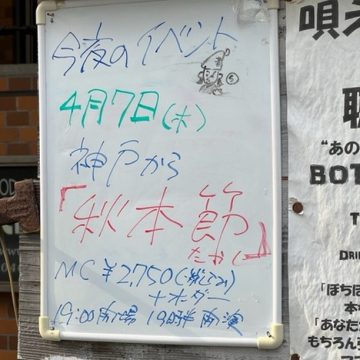 今夜のイベント
4月7日(木)
神戸から
「秋本節」
たかし
MC ¥2,750(税込)
+オーダー
19:00開場 19時半開演
唄
"あの
BOT
T
DRI
「ぽちぽ
本
「あなた
もちろん